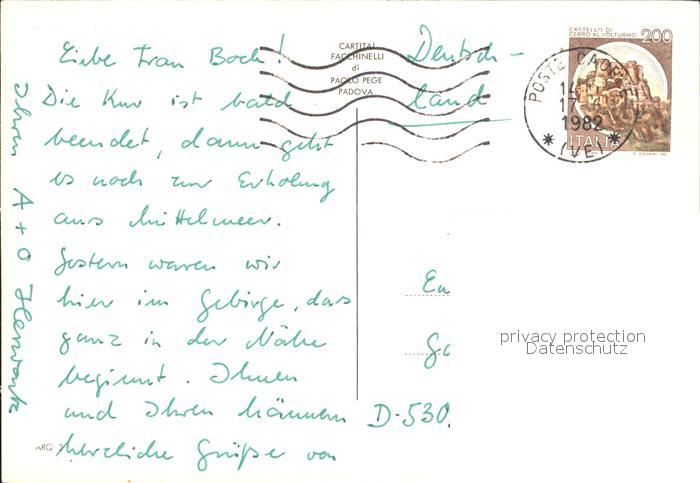 Liebe Frau Bock!
Die Kur ist bald
beendet, dann geht
es noch zur Erholung
ans Mittelmeer.
Gestern waren wir
hier im Gebirge, das
ganz in der Nähe
beginnt. Ihnen
und Ihren Männern
herzliche Grüße von
Ihren A + O
CARTITAL
FACCHINELLI
di
PAOLO PEGE
PADOVA
Deutsch-
land
CASTELLO DI
CERRO AL VOLTURNO 200
ITALIA
POSTE
14
17
1982
(VE)
D-530
privacy protection
Datenschutz